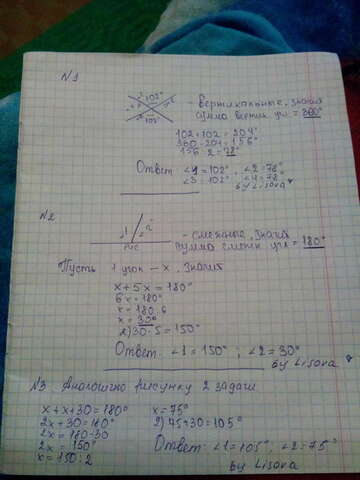 №1
2 102° - Вертикальные, значит
102° сумма вертик угл = 360°
102 + 102 = 204°
360 - 204 = 156°
156 : 2 = 78°
Ответ ∠1 = 102°, ∠2 = 78°
∠3 = 102°, ∠4 = 78°
by Lisova
№2
1 2 - смежные, значит
рис сумма смежн угл = 180°
Пусть 1 угол - x, значит
x + 5x = 180°
6x = 180°
x = 180:6
x = 30°
2) 30·5 = 150°
Ответ: ∠1 = 150°; ∠2 = 30°
by Lisova
№3 Аналогично рисунку 2 задачи
x + x + 30 = 180° x = 75°
2x + 30 = 180° 2) 75 + 30 = 105°
2x = 180 - 30
2x = 150° Ответ: ∠1 = 105°, ∠2 = 75°
x = 150 : 2 by Lisova